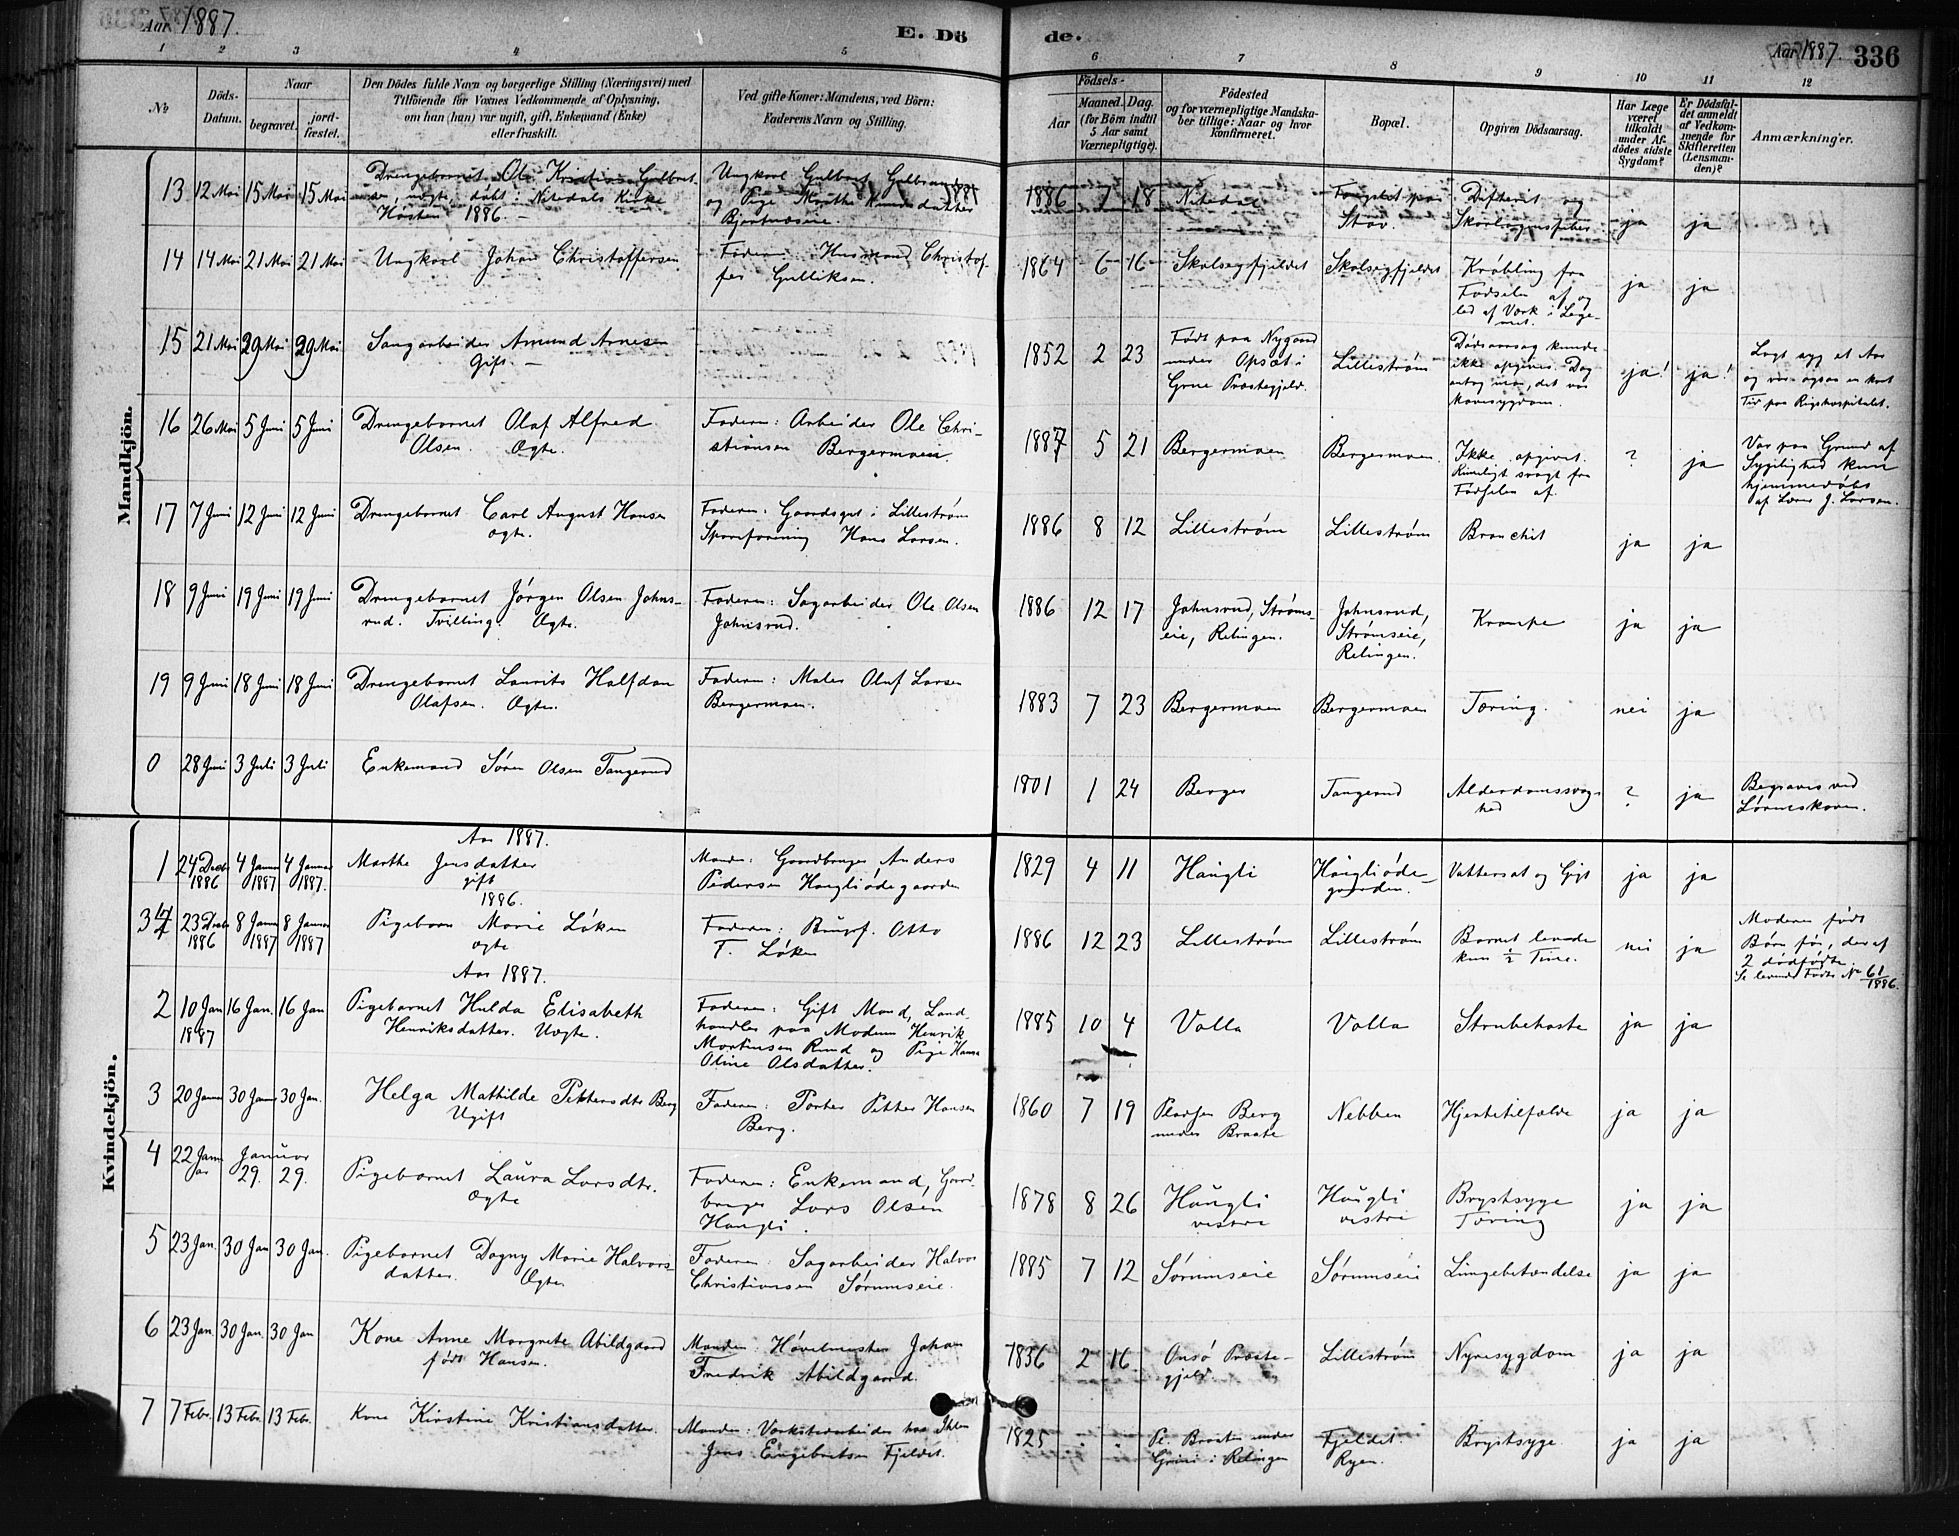 Aar 1887.
E. Dö
de.
Aar 1887.
336
1 2 3 4 5 6 7 8 9 10 11 12
No
Döds-Datum.
Naar
begravet.
jordfæstet.
Den Dödes fulde Navn og borgerlige Stilling (Næringsvei) med
Tilföiende för Voxnes Vedkommende af Oplysning,
om han (hun) var ugift, gift, Enkemand (Enke)
eller fraskilt.
Ved gifte Koner: Mandens, ved Börn:
Faderens Navn og Stilling.
Födsels-
Aar
Maaned. Dag.
(for Börn indtil
5 Aar samt
Værnepligtige).
Födested
og for værnepligtige Mandska-
ber tillige: Naar og hvor
konfirmeret.
Bopæl.
Opgiven Dödsaarsag.
Har Læge
været
tilkaldt
under Af-
dödes sidste
Sygdom?
Er Dödsfal-
det anmeldt
af Vedkom-
mende for
Skifteretten
(Lensman-
den)?
Anmærkninger.
Mandkjön.
13 12 Mai 15 Mai 15 Mai Drengebarnet Ole Kristian Gulbrandsen, uægte, döbt i Nitedals Kirke Høsten 1886. — Ungkarl Gulbrand og Pige Marthe 1886 7 18 Nitedal Difterit og Skarlagensfeber ja ja
14 14 Mai 21 Mai 21 Mai Ungkarl Johan Christoffersen Faderen: Husmand Christoffer Gulliksen. 1864 6 16 Skolsegfjeldet Skolsegfjeldet Krøbling fra Fødselen af og led af Værk i Legemet. ja ja
15 21 Mai 29 Mai 29 Mai Saugarbeider Amund Arnesen Gift. — 1852 2 23 Født paa Nygaard under Opsæt i Grue Præstegjeld. Lilleström Dødsaarsag kunde ikke opgives. Dog antog man, det var Mavesygdom. ja! ja! Lagt syg et Aar og var ogsaa en kort Tid paa Rigshospitalet.
16 26 Mai 5 Juni 5 Juni Drengebarnet Olaf Alfred Olsen. Ægte. Faderen: Arbeider Ole Christiansen Bergermoen. 1887 5 21 Bergermoen Bergermoen Ikke opgivet. Rimeligt svagt fra Fødselen af. ? ja Var paa Grund af Sygelighed kun hjemmedøbt af Lærer J. Larsen.
17 7 Juni 12 Juni 12 Juni Drengebarnet Carl August Hansen ægte. Faderen: Gaardsgut i Lilleström Hans Larsen. 1886 8 12 Lilleström Lilleström Bronchit ja ja
18 9 Juni 19 Juni 19 Juni Drengebarnet Jörgen Olsen Johnsrud. Tvilling. Ægte. Faderen: Sagarbeider Ole Olsen Johnsrud. 1886 12 17 Johnsrud, Strømseie, Relingen. Johnsrud, Strømseie, Relingen. Krampe ja ja
19 9 Juni 18 Juni 18 Juni Drengebarnet Laurits Halfdan Olafsen. Ægte. Faderen: Maler Oluf Larsen Bergermoen. 1883 7 23 Bergermoen Bergermoen Tæring. nei ja
0 28 Juni 3 Juli 3 Juli Enkemand Sören Olsen Tangerud 1801 1 24 Berger Tangerud Alderdomssvaghed ? ja Begraves ved Lørenskoven.
Kvindekjön.
Aar 1887.
1 24 Decbr 1886 4 Januar 1887 4 Januar 1887. Marthe Jensdatter gift Manden: Gaardbruger Anders Pedersen Haugliødegaarden 1829 4 11 Haugli Haugliødegaarden. Vattersot og Gigt ja ja
1886.
34 23 Decbr 1886 8 Januar 1887 8 Januar 1887 Pigebarn Marie Løken ægte Faderen: Otto T. Løken 1886 12 23 Lilleström Lilleström Barnet levede kun ½ Time. nei ja Moderen født Børn før, deraf 2 dødfødte. Se levende Fødte No 61/1886.
Aar 1887.
2 10 Jan 1887 16 Jan. 16 Jan Pigebarnet Hulda Elisabeth Henriksdatter. Uægte. Faderen: Gift Mand, Landhandler paa Modum Henrik Mortensen Rund og Pige Hanna Oline Olsdatter. 1885 10 4 Valla Valla Strubehoste ja ja
3 20 Januar 30 Januar 30 Jan. Helga Mathilde Pettersdtr Berg Ugift Faderen: Porter Petter Hansen Berg. 1860 7 19 Pladsen Berg under Braate Nebben Hjertetilfælde ja ja
4 22 Januar Januar 29. 29. Pigebarnet Laura Larsdtr. Ægte Faderen: Enkemand, Gaardbruger Lars Olsen Haugli. 1878 8 26 Haugli vestre Haugli vestre Brystsyge Tæring ja ja
5 23 Jan. 30 Jan 30 Jan. Pigebarnet Dagny Marie Halvorsdatter. Ægte Faderen: Sagarbeider Halvor Christiansen Sørumseie. 1885 7 12 Sørumseie Sørumseie Lungebetændelse ja ja
6 23 Jan. 30 Jan. 30 Jan Kone Anne Margrete Abildgaard født Hansen. Manden: Høvelmester Johan Fredrik Abildgaard. 1836 2 16 Onsø Præstegjeld Lilleström Nyresygdom ja ja
7 7 Febr. 13 Febr. 13 Febr. Kone Kirstine Kristiansdatter. Manden: Værkstedarbeider hos Ihlen Jens Engebretsen Fjeldet. 1825 Pl. Braaten under Grini i Relingen Fjeldet Ryen. Brystsyge ja ja